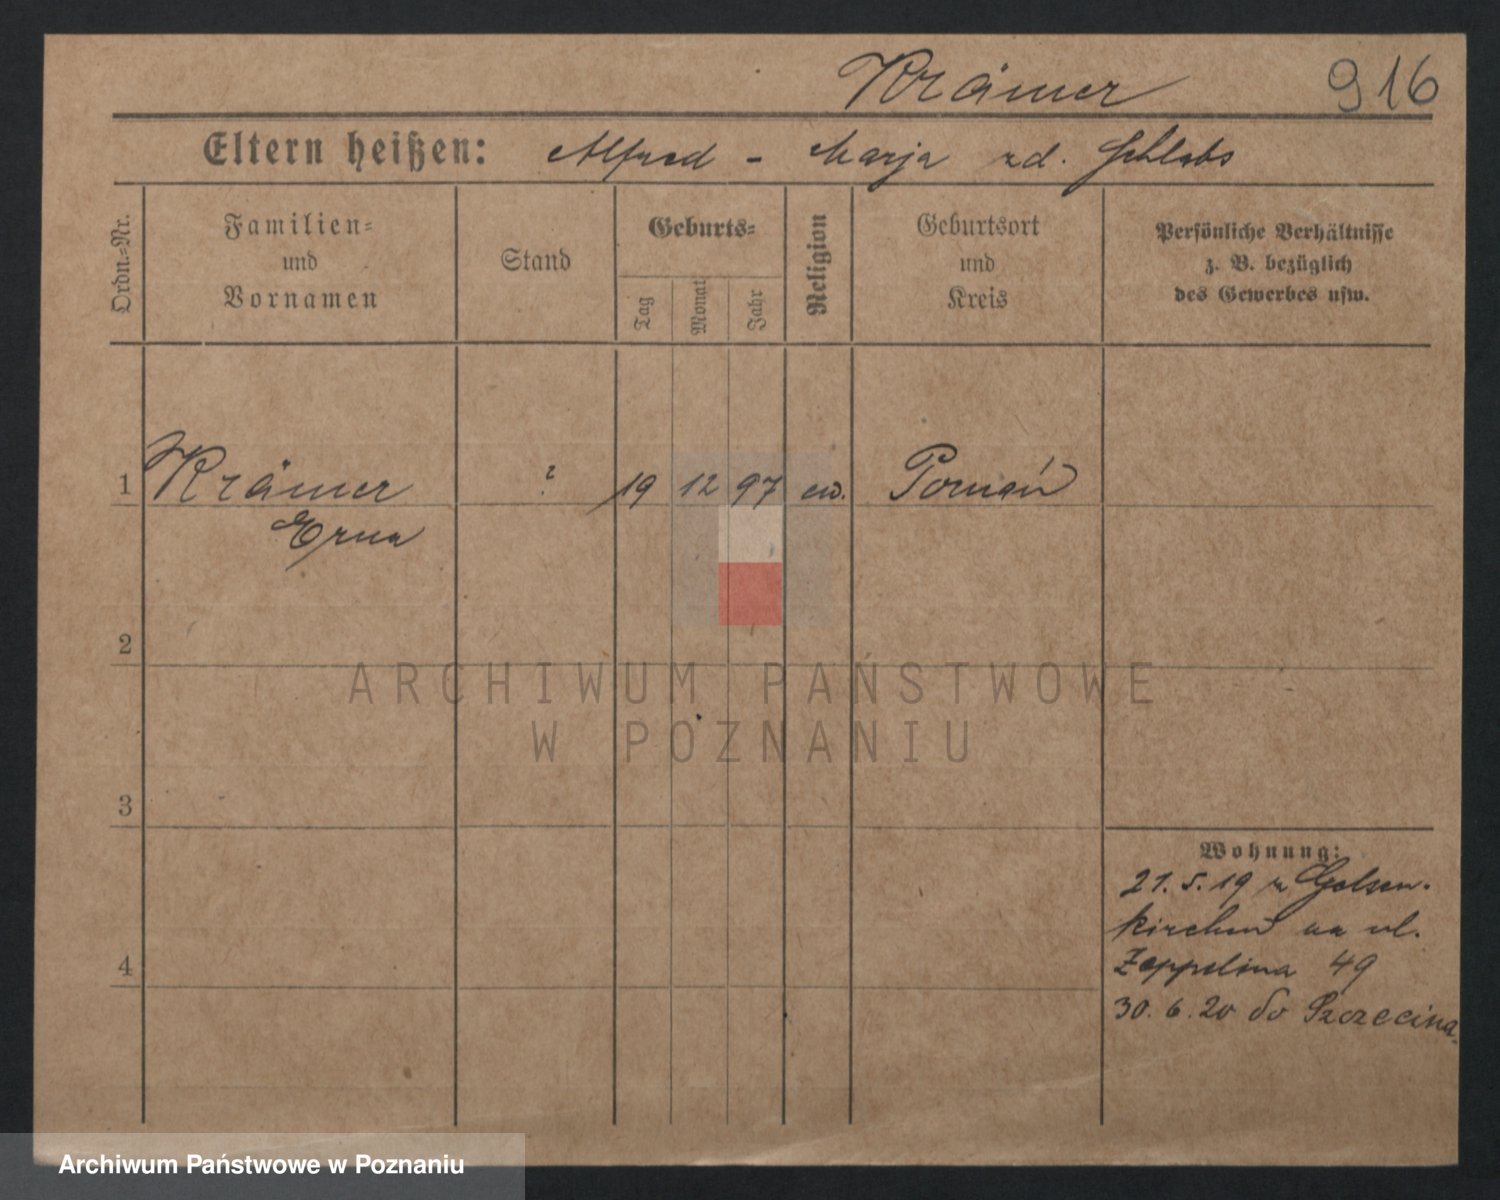 Krämer 916
Eltern heißen: Alfred - Marja zd. Schlabs
Ordn.-Nr.
Familien-
und
Vornamen
Stand
Geburts-
Tag
Monat
Jahr
Religion
Geburtsort
und
Kreis
Persönliche Verhältnisse
z. B. bezüglich
des Gewerbes usw.
1 Krämer ? 19 12 97 ew. Poznań
Erna
2
3
4
Wohnung:
21.5.19 z Gelsen-
kirchen na ul.
Zeppelina 49
30.6.20 do Szczecina
ARCHIWUM PAŃSTWOWE
W POZNANIU
Archiwum Państwowe w Poznaniu